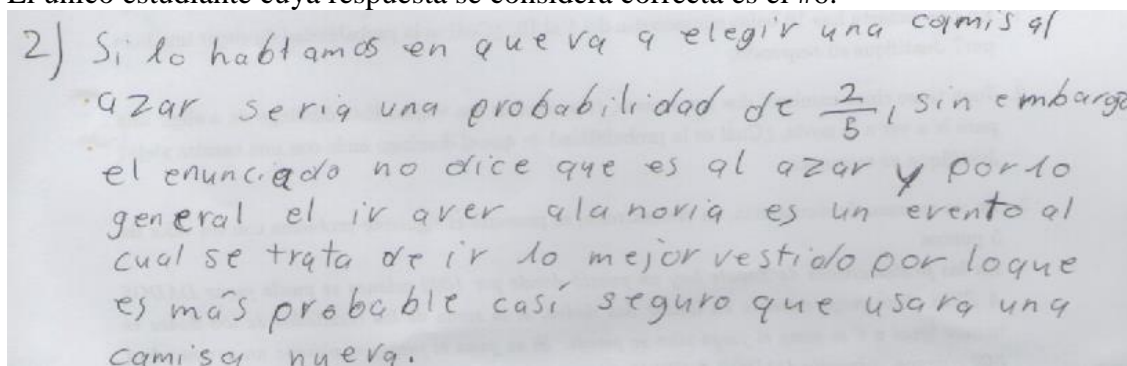 El único estudiante cuya respuesta se considera correcta es el #8.
2) Si lo hablamos en que va a elegir una camisa al
azar seria una probabilidad de 2/5, sin embargo
el enunciado no dice que es al azar y por lo
general el ir aver ala novia es un evento al
cual se trata de ir lo mejor vestido por loque
es más probable casí seguro que usara una
camisa nueva.